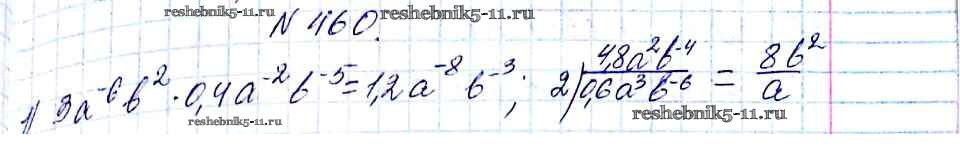 reshebnik5-11.ru
N 460. reshebnik5-11.ru
1) 3a⁻⁶b² · 0,4a⁻²b⁻⁵ = 1,2a⁻⁸b⁻³; 2) 4,8a²b⁻⁴ / 0,6a³b⁻⁶ = 8b² / a
reshebnik5-11.ru
reshebnik5-11.ru